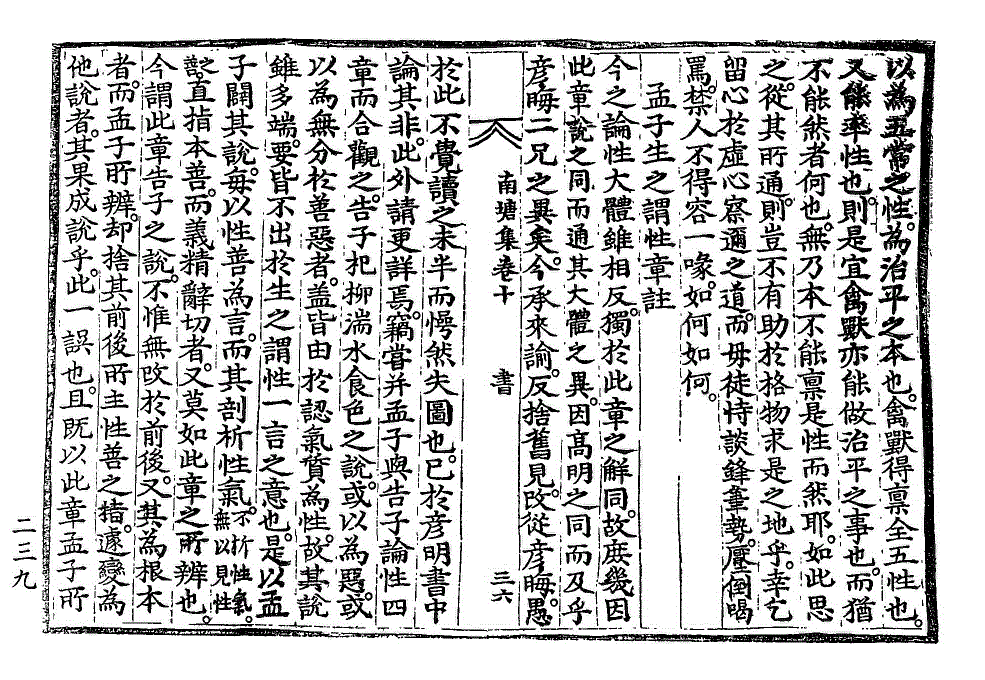 以爲五常之性。爲治平之本也。禽獸得禀全五性也。
又能率性也。則是宜禽獸亦能做治平之事也。而猶
不能然者何也。無乃本不能禀是性而然耶。如此思
之。從其所通。則豈不有助於格物求是之地乎。幸乞
留心於虛心察邇之道。而毋徒恃談鋒筆勢。壓倒喝
罵。禁人不得容一喙。如何如何。
孟子生之謂性章註
今之論性大體雖相反。獨於此章之解同。故庶幾因
此章說之同而通其大體之異。因高明之同而及乎
彦晦二兄之異矣。今承來諭。反捨舊見。改從彦晦。愚
南塘集卷十 書 三六
於此不覺讀之未半而愕然失圖也。已於彦明書中
論其非。此外請更詳焉。竊嘗并孟子與告子論性四
章而合觀之。告子杞柳湍水食色之說。或以爲惡。或
以爲無分於善惡者。盖皆由於認氣質爲性。故其說
雖多端。要皆不出於生之謂性一言之意也。是以孟
子闢其說。每以性善爲言。而其剖析性氣。不析性氣。無以見性
之善。直指本善。而義精辭切者。又莫如此章之所辨也。
今謂此章告子之說。不惟無改於前後。又其爲根本
者。而孟子所辨。却捨其前後所主性善之指。遽變爲
他說者。其果成說乎。此一誤也。且既以此章孟子所
二三九